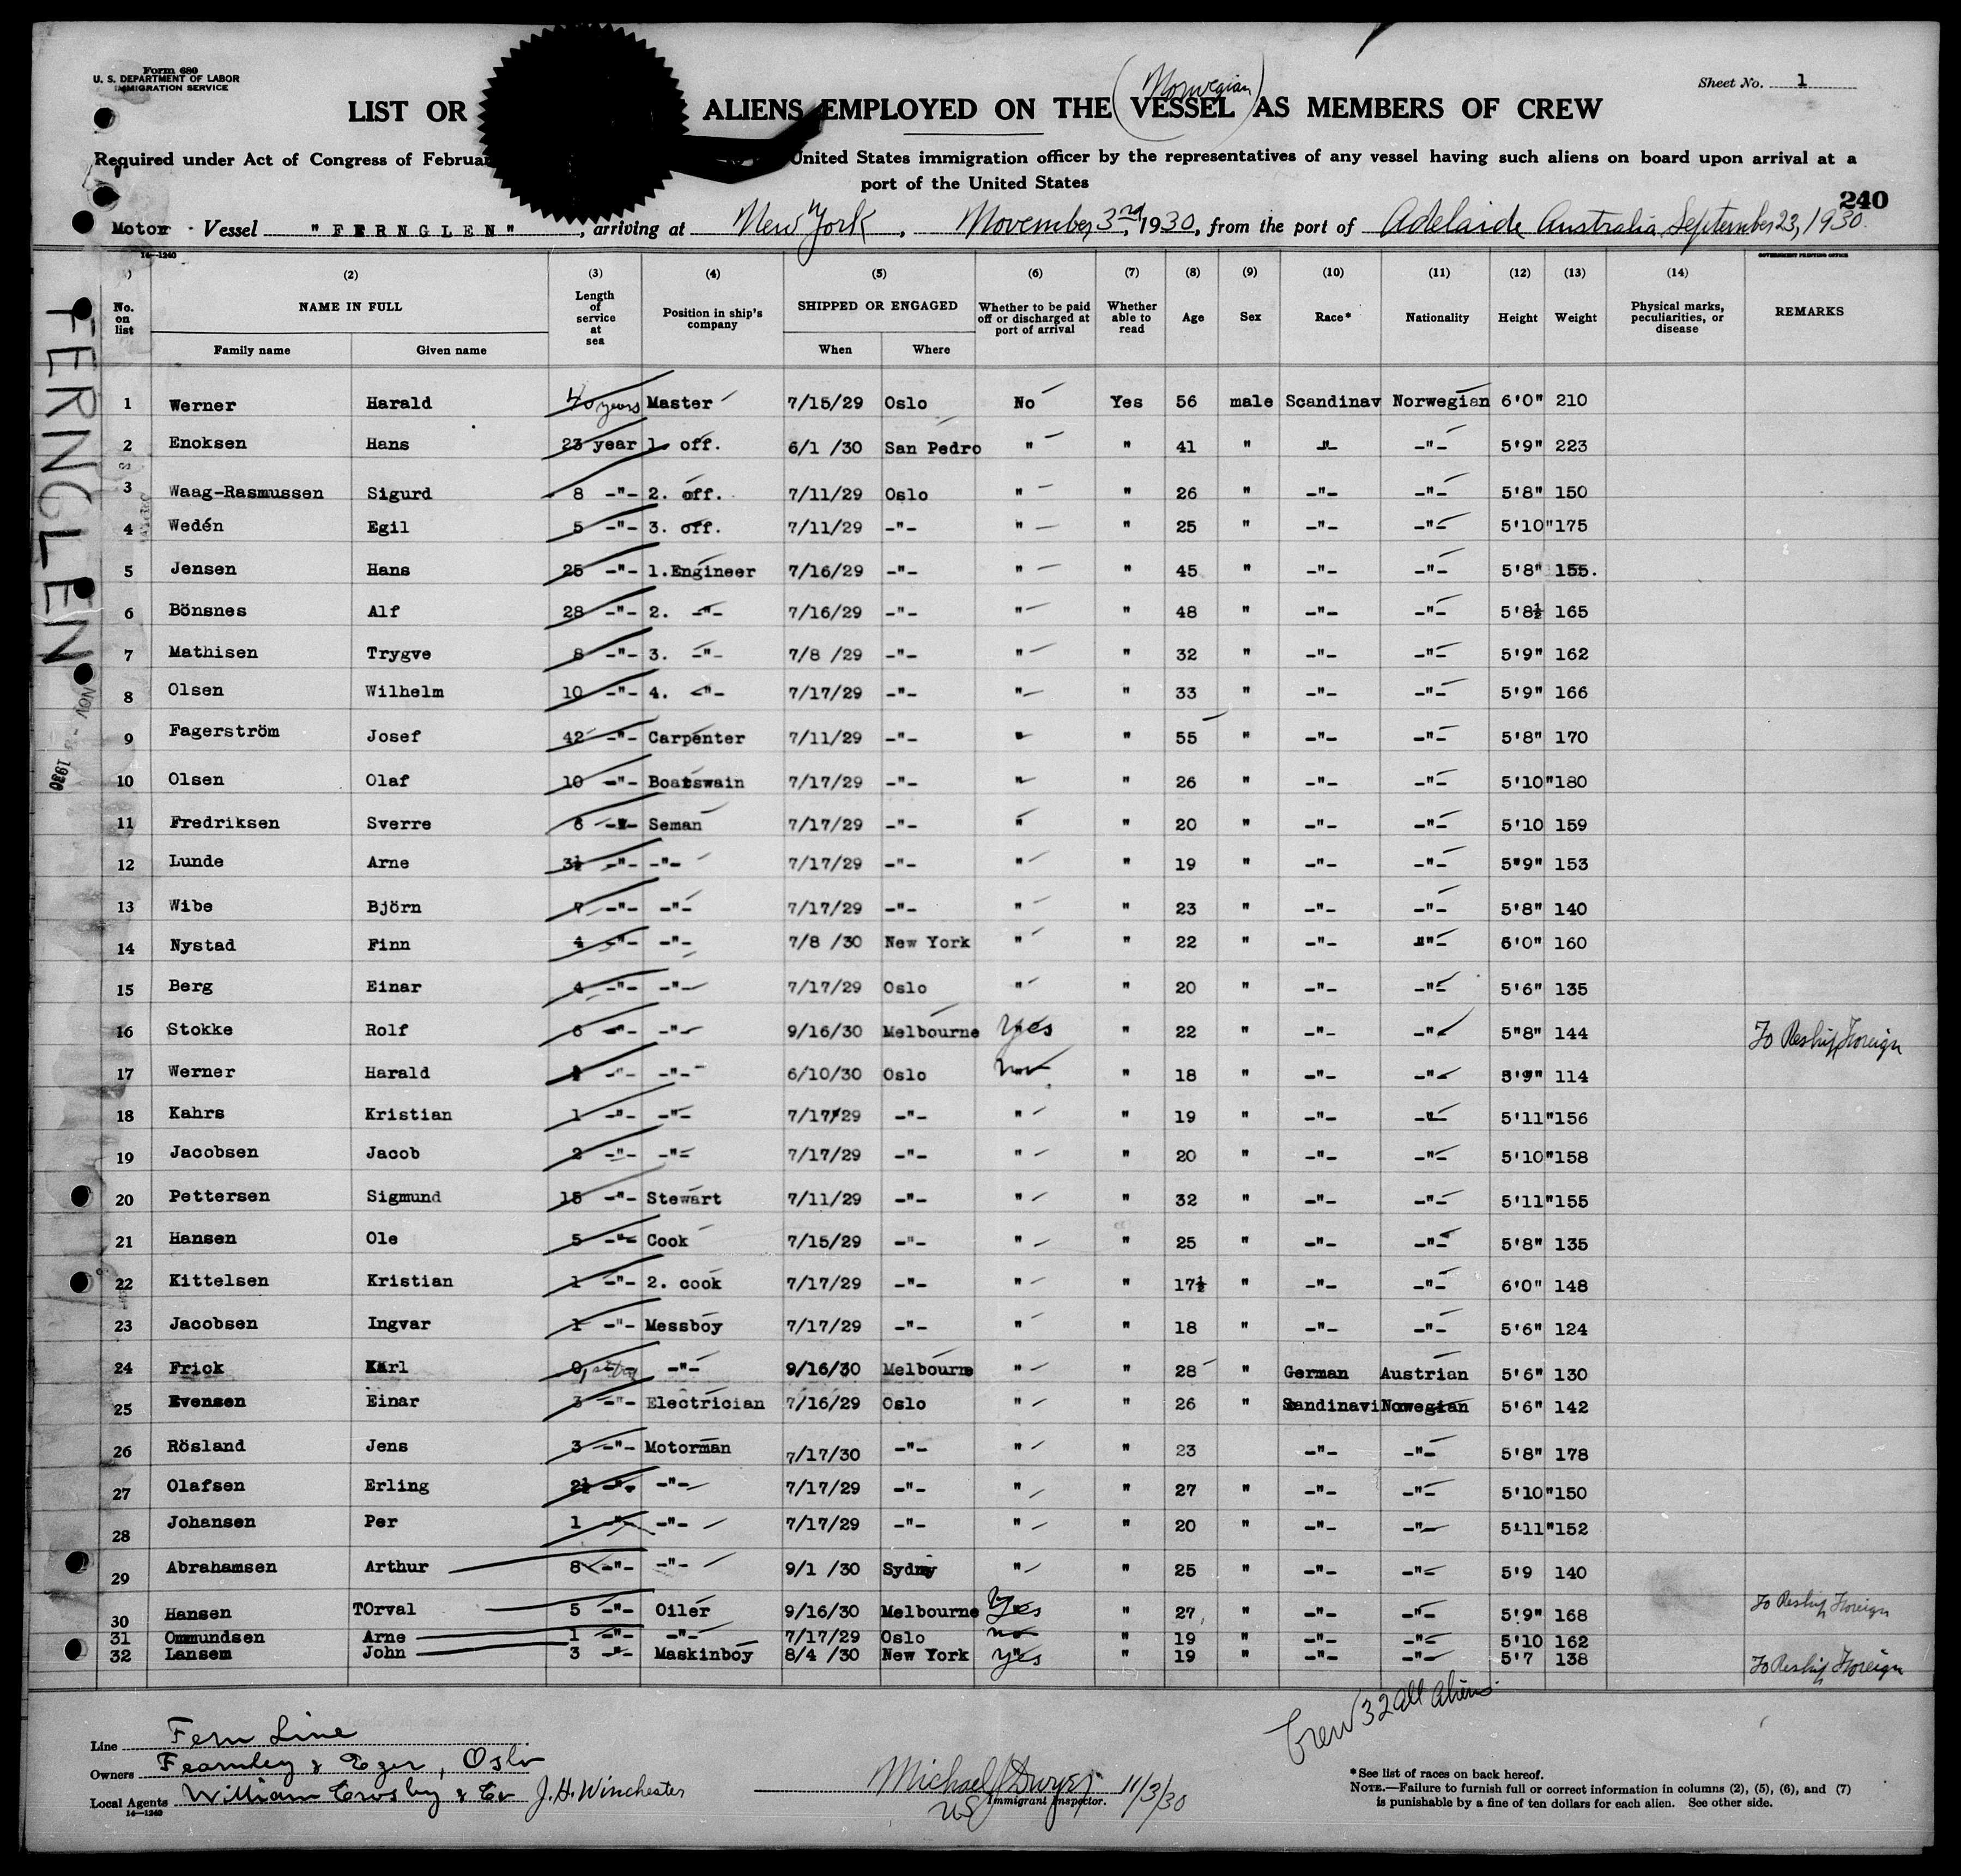 Form 680
U. S. DEPARTMENT OF LABOR
IMMIGRATION SERVICE
Sheet No. 1
(Norwegian)
LIST OR ALIENS EMPLOYED ON THE VESSEL AS MEMBERS OF CREW
Required under Act of Congress of Februar United States immigration officer by the representatives of any vessel having such aliens on board upon arrival at a
port of the United States
240
Motor Vessel "FERNGLEN", arriving at New York, November 3rd, 1930, from the port of Adelaide Australia September 23, 1930.
14—1240
GOVERNMENT PRINTING OFFICE
(2) (3) (4) (5) (6) (7) (8) (9) (10) (11) (12) (13) (14)
No. on list NAME IN FULL Length of service at sea Position in ship's company SHIPPED OR ENGAGED Whether to be paid off or discharged at port of arrival Whether able to read Age Sex Race* Nationality Height Weight Physical marks, peculiarities, or disease REMARKS
Family name Given name When Where
1 Werner Harald 40 years Master 7/15/29 Oslo No Yes 56 male Scandinav Norwegian 6'0" 210
2 Enoksen Hans 23 year 1. off. 6/1 /30 San Pedro " " 41 " -"- -"- 5'9" 223
3 Waag-Rasmussen Sigurd 8 -"- 2. off. 7/11/29 Oslo " " 26 " -"- -"- 5'8" 150
4 Wedén Egil 5 -"- 3. off. 7/11/29 -"- " " 25 " -"- -"- 5'10" 175
5 Jensen Hans 25 -"- 1.Engineer 7/16/29 -"- " " 45 " -"- -"- 5'8" 155.
6 Bönsnes Alf 28 -"- 2. -"- 7/16/29 -"- " " 48 " -"- -"- 5'8½ 165
7 Mathisen Trygve 8 -"- 3. -"- 7/8 /29 -"- " " 32 " -"- -"- 5'9" 162
8 Olsen Wilhelm 10 -"- 4. -"- 7/17/29 -"- " " 33 " -"- -"- 5'9" 166
9 Fagerström Josef 42 -"- Carpenter 7/11/29 -"- " " 55 " -"- -"- 5'8" 170
10 Olsen Olaf 10 -"- Boatswain 7/17/29 -"- " " 26 " -"- -"- 5'10" 180
11 Fredriksen Sverre 6 -"- Seman 7/17/29 -"- " " 20 " -"- -"- 5'10 159
12 Lunde Arne 3½ -"- -"- 7/17/29 -"- " " 19 " -"- -"- 5"9" 153
13 Wibe Björn 7 -"- -"- 7/17/29 -"- " " 23 " -"- -"- 5'8" 140
14 Nystad Finn 4 -"- -"- 7/8 /30 New York " " 22 " -"- -"- 6'0" 160
15 Berg Einar 4 -"- -"- 7/17/29 Oslo " " 20 " -"- -"- 5'6" 135
16 Stokke Rolf 6 -"- -"- 9/16/30 Melbourne Yes " 22 " -"- -"- 5"8" 144 To Reship Foreign
17 Werner Harald -"- -"- 6/10/30 Oslo no " 18 " -"- -"- 5'9" 114
18 Kahrs Kristian 1 -"- -"- 7/17/29 -"- " " 19 " -"- -"- 5'11" 156
19 Jacobsen Jacob 2 -"- -"- 7/17/29 -"- " " 20 " -"- -"- 5'10" 158
20 Pettersen Sigmund 15 -"- Stewart 7/11/29 -"- " " 32 " -"- -"- 5'11" 155
21 Hansen Ole 5 -"- Cook 7/15/29 -"- " " 25 " -"- -"- 5'8" 135
22 Kittelsen Kristian 1 -"- 2. cook 7/17/29 -"- " " 17½ " -"- -"- 6'0" 148
23 Jacobsen Ingvar 1 -"- Messboy 7/17/29 -"- " " 18 " -"- -"- 5'6" 124
24 Frick Karl 0, -"- 9/16/30 Melbourne " " 28 " German Austrian 5'6" 130
25 Evensen Einar 3 -"- Electrician 7/16/29 Oslo " " 26 " Scandinavi Norwegian 5'6" 142
26 Rösland Jens 3 -"- Motorman 7/17/30 -"- " " 23 -"- -"- 5'8" 178
27 Olafsen Erling 2½ -"- -"- 7/17/29 -"- " " 27 " -"- -"- 5'10" 150
28 Johansen Per 1 -"- -"- 7/17/29 -"- " " 20 " -"- -"- 5'11" 152
29 Abrahamsen Arthur 8 -"- -"- 9/1 /30 Sydny " " 25 " -"- -"- 5'9 140
30 Hansen TOrval 5 -"- Oiler 9/16/30 Melbourne Yes " 27 " -"- -"- 5'9" 168 To Reship Foreign
31 Ommundsen Arne 1 -"- -"- 7/17/29 Oslo no " 19 " -"- -"- 5'10 162
32 Lansem John 3 -"- Maskinboy 8/4 /30 New York yes " 19 " -"- -"- 5'7 138 To Reship Foreign
FERNGLEN
NOV 1930
Crew 32 all aliens.
Line Fern Line
Owners Fearnley & Eger, Oslo
Local Agents William Crosby & Co J. H. Winchester
14—1240
Michael J Dwyer 11/3/30
US Immigrant Inspector.
*See list of races on back hereof.
NOTE.—Failure to furnish full or correct information in columns (2), (5), (6), and (7)
is punishable by a fine of ten dollars for each alien. See other side.